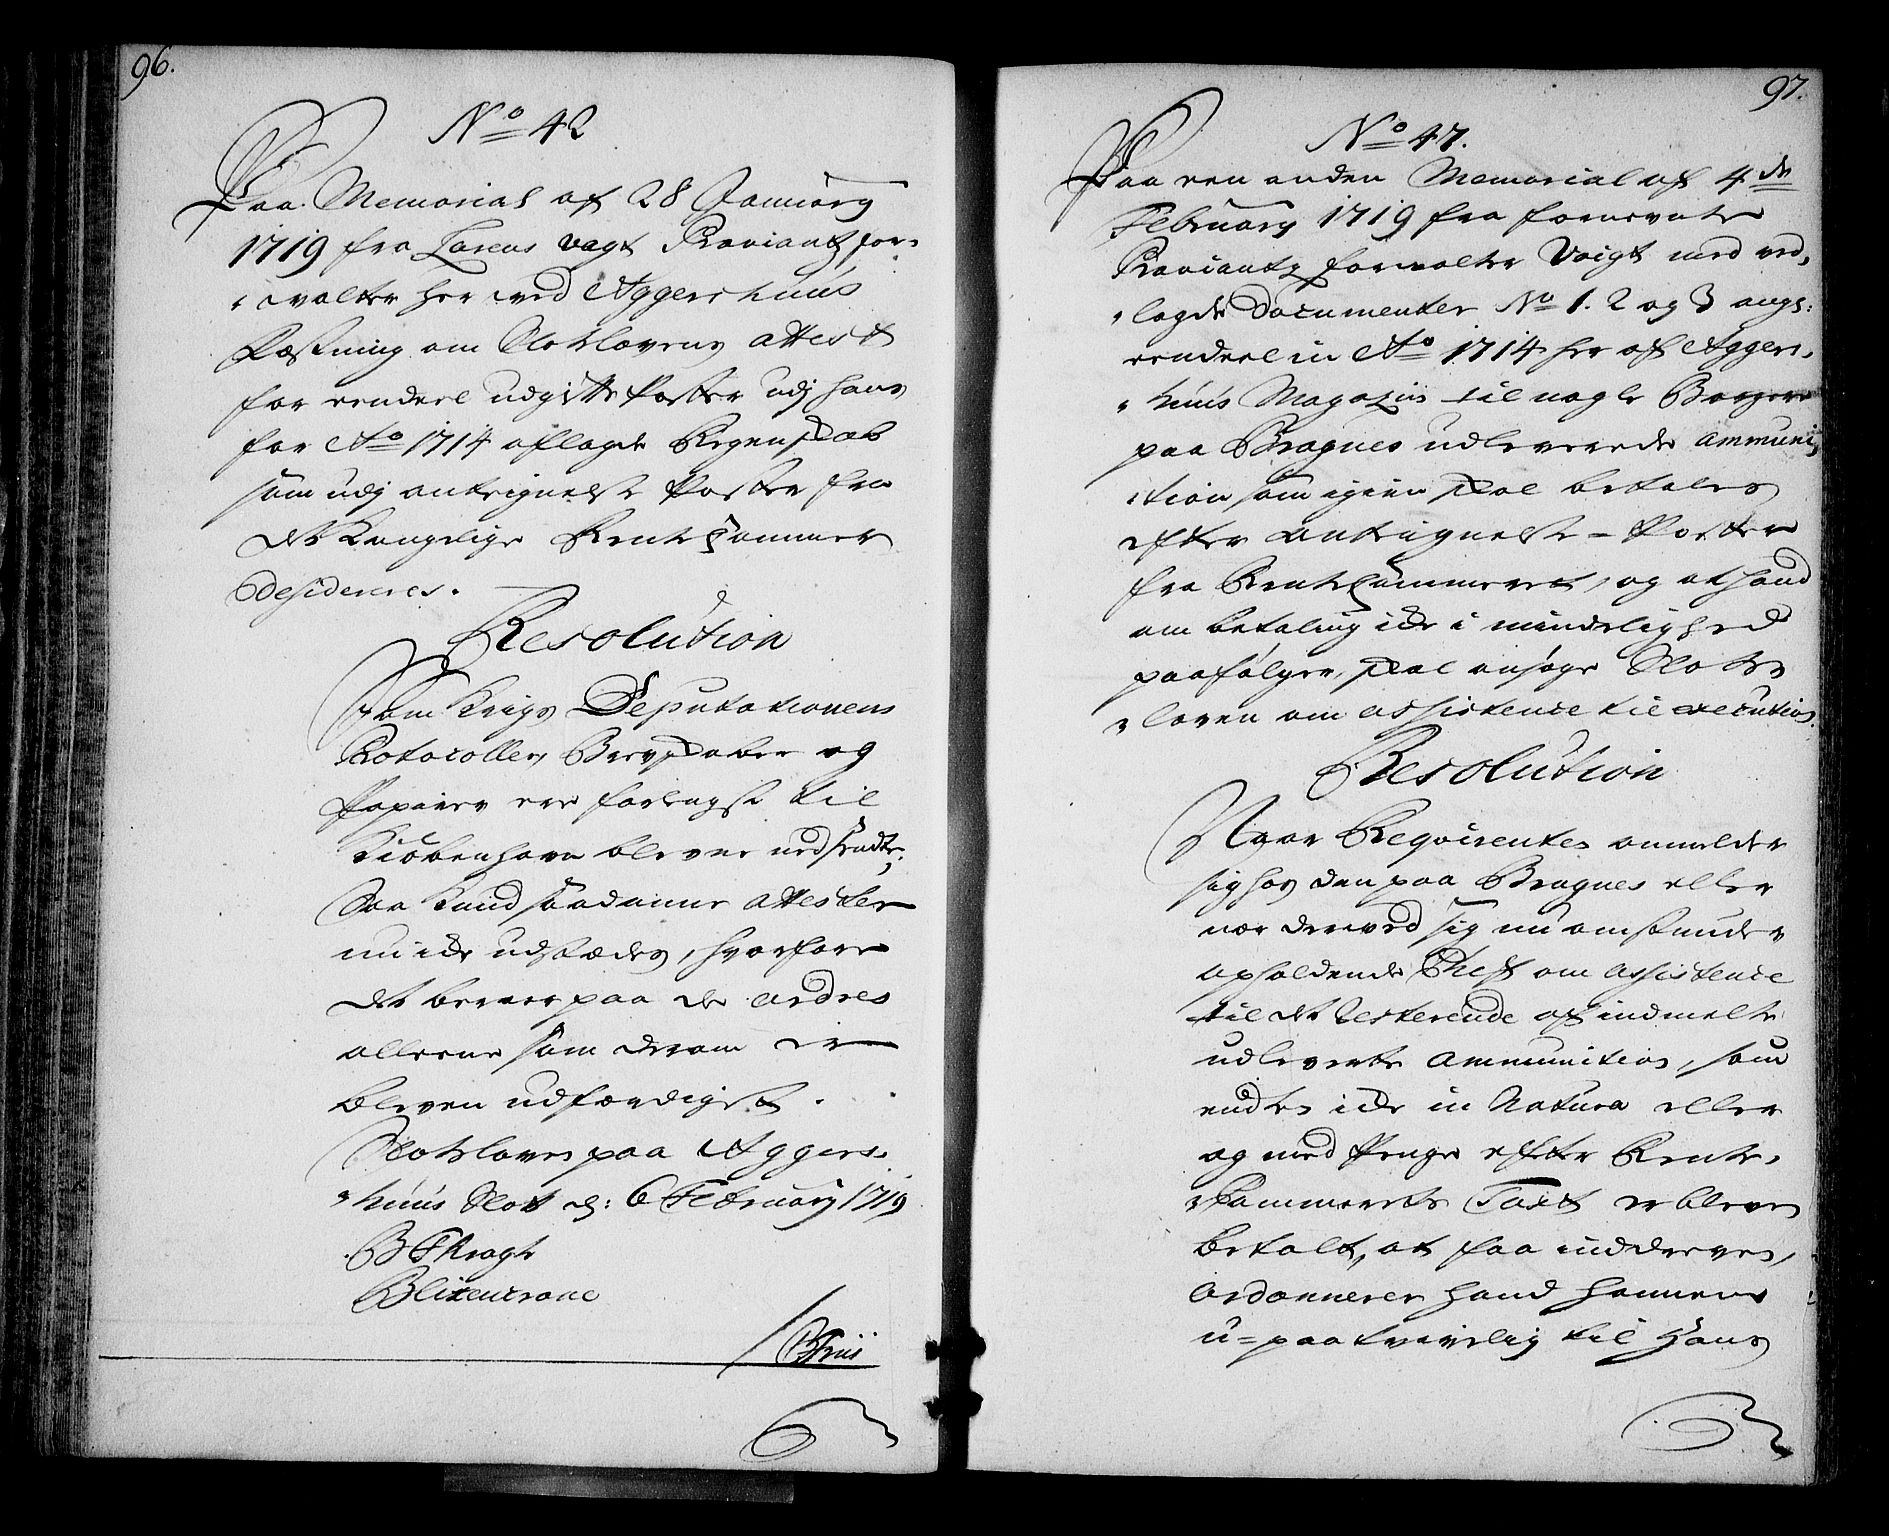 96.
No 42
Paa Memorial af 28 January
1719 fra Larens Vagt Proviantz for-
valter her ved Aggershuus
Fæstning om Slotslovens attest
for eendeel udgiffts Poster udj hans
for Ao 1714 aflagde Regenskab
som udj antegnelse Poster fra
det Kongelige Rente Cammer
Desidereres.
Resolution
Som Krigs Deputationens
Protocoller, Brevskaber og
Papirer ere forlengst til
Kiøbenhavn blevne nedsendte;
Saa kand saadanne attester
nu icke udstædes, hvorfore
det beroer paa de ordres
alleene som derom er
bleven udfærdiget.
Slotsloven paa Aggers-
huus Slot d: 6 February 1719
B F Kragh
Blixencrone
BFriis
97.
No 47.
Paa een anden Memorial af 4de
February 1719 fra fornevnte
Proviantz forvalter Voigt med ved-
lagde Documenter No 1. 2 og 3 ang:
eendeel in Ao 1714 her af Aggers-
huus Magazin til nogle Borgere
paa Bragnes udleverede ammuni-
tion som igien skal betales
efter antegnelse-Poster
fra Rente Cammeret, og at hand
om betaling icke i mindelighed
paafølger, skal ansøge Slots-
loven om assistence til execution.
Resolution
Naar Requirenten anmelder
sig hos den paa Bragnes eller
nær derved sig nu omstunder
opholdende Chef om assistence
til det Resterende af indmelte
udleverte Ammunition, som
endten icke in Natura eller
og med Penge efter Rente-
Kammerets Taxt er bleven
betalt, at faa inddreven,
Ordonnerer hand hannem
u-paatvivlig til hans